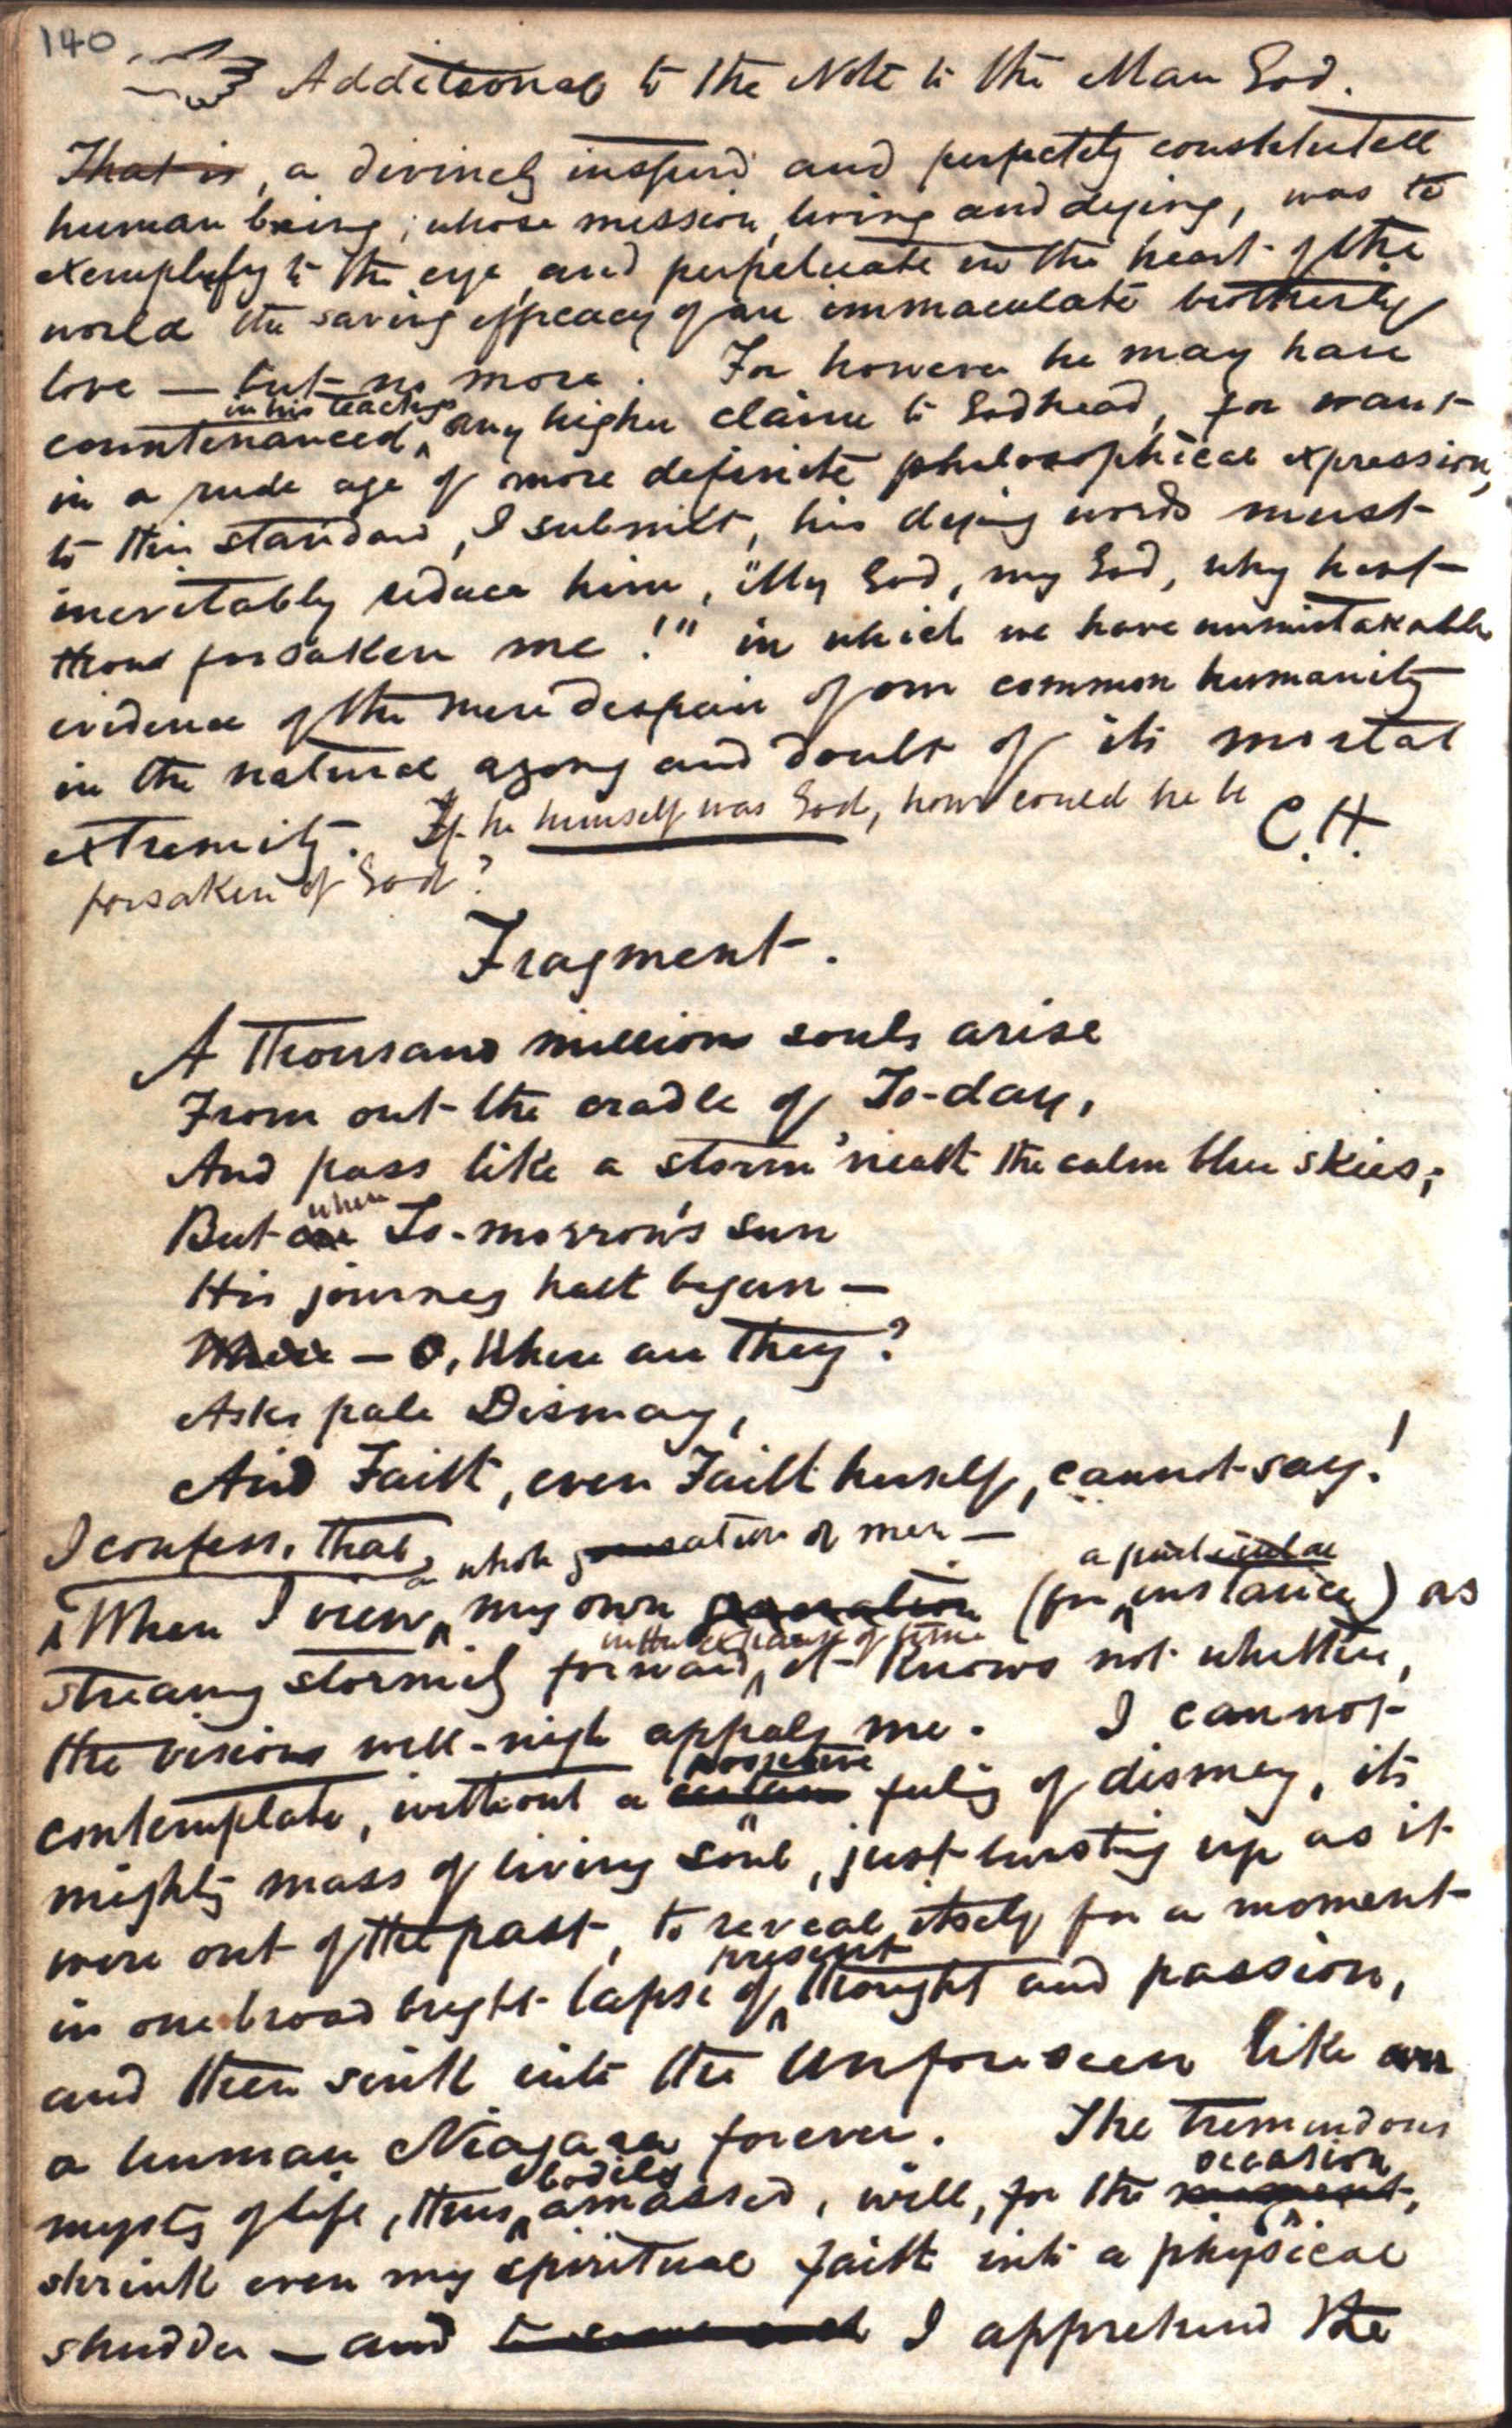 140
Additional to the Note to the Man God.
That is, a divinely inspired and perfectly constituted
human being; whose mission, living and dying, was to
exemplify to the eye and perpetuate in the heart of the
world the saving efficacy of an immaculate brotherly
love — but no more. For however he may have
in his teachings
countenanced any higher claim to Godhead, for want
in a rude age of more definite philosophical expression,
to this standard, I submit, his dying words must
inevitably reduce him, "My God, my God, why hast
thou forsaken me!" in which we have unmistakable
evidence of the mere despair of our common humanity
in the natural agony and doubt of its mortal
extremity. If he himself was God, how could he be
forsaken of God?
C.H.
Fragment.
A thousand million souls arise
From out the cradle of To-day,
And pass like a storm 'neath the calm blue skies;
when
But To-morrow's sun
His journey hath begun —
Where — O, Where are they?
Asks pale Dismay,
And Faith, even Faith herself, cannot say!
I confess, that,
a whole generation of men —
a particular
When I view my own generation (for instance) as
in the expanse of time
streaming stormily forward it knows not whither,
the vision well-nigh appals me. I cannot
positive
contemplate, without a certain feeling of dismay, its
mighty mass of living soul, just bursting up as it
were out of the past, to reveal itself for a moment
present
in one broad bright lapse of thought and passion,
and then sink into the Unforeseen like
a human Niagara forever. The tremendous
bodily
occasion
mystery of life, thus amassed, will, for the moment,
shrink even my spiritual faith into a physical
shudder — and I apprehend the